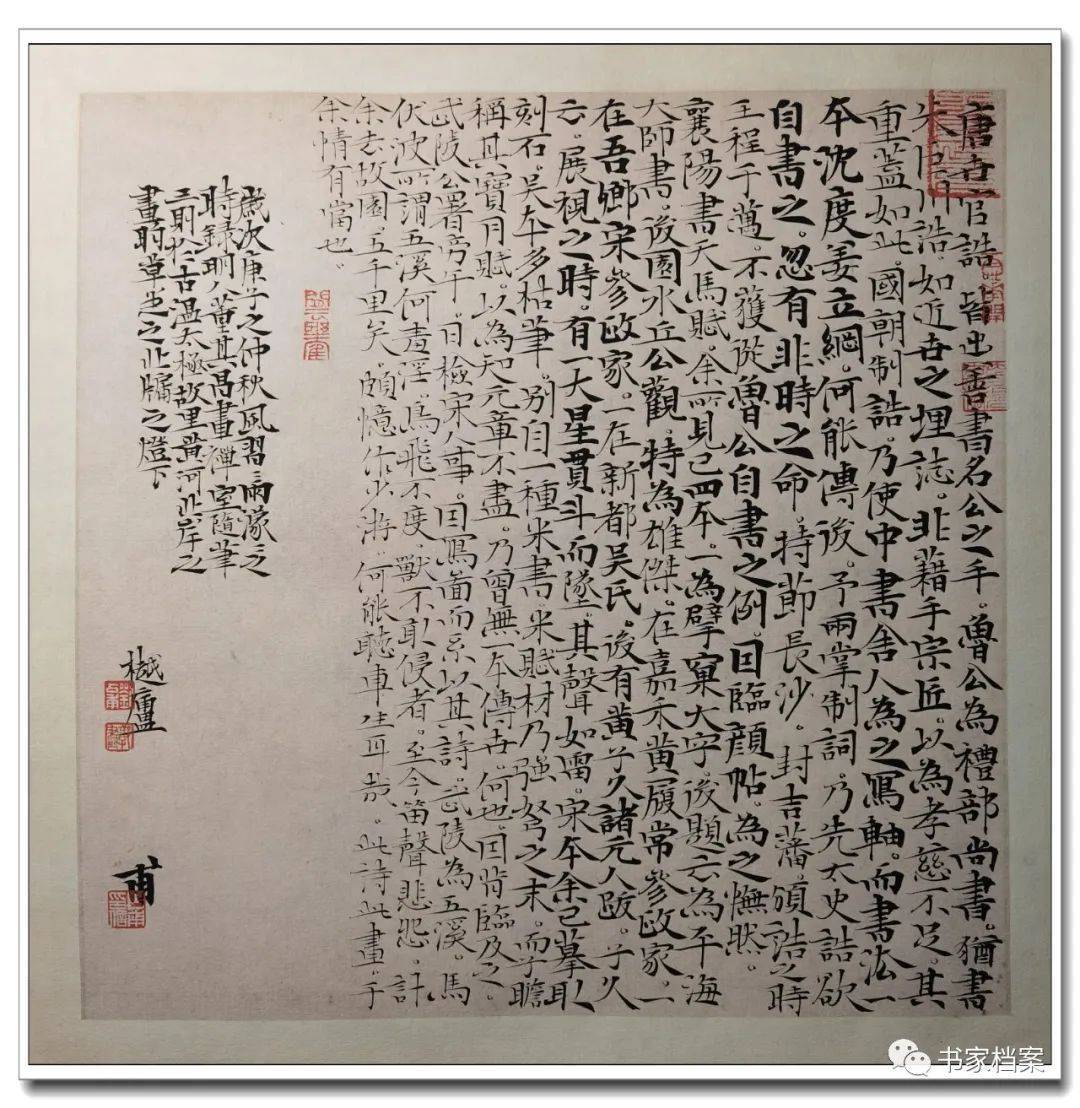 唐世官誥。皆出善書名公之手。魯公為禮部尚書。猶書
朱巨川誥。如近世之埋誌。非藉手宗匠。以為孝慈不足。其
重蓋如此。國朝制誥。乃使中書舍人為之寫軸。而書法一
本沈度姜立綱。何能傳後。予兩掌制詞。乃先太史誥欲
自書之。忽有非時之命。持節長沙。封吉藩。頒誥之時
王程于萬。不獲從魯公自書之例。因臨顏帖。為之憮然。
襄陽書天馬賦。余所見已四本。一為擘窠大字。後題云為平海
大師書。後園水丘公觀。特為雄傑。在嘉禾黃履常參政家。一
在吾鄉宋參政家。一在新都吳氏。後有黃子久諸元人跋。子久
云。展視之時。有一大星貫斗而墜。其聲如雷。宋本余已摹取
刻石。吳本多枯筆。別自一種米書。米賦材乃强弩之末。而子瞻
稱其寶月賦。以為知元章不盡。乃曾無一本傳世。何也。因背臨及之。
武陵公署旁午。日檢宋人事。因寫圖而系以其詩。武陵為五溪。馬
伏波所謂五溪何毒淫。鳥飛不度。獸不敢侵者。至今笛聲悲怨。計
余去故園。五千里矣。頗憶作少游。何能聽車生耳哉。此詩此畫。于
余情有當也。
歲次庚子之仲秋風習習雨濛濛之
時錄明人董其昌畫禪室隨筆
三則於古溫太極故里黃河北岸之
書家檔案
樾廬
甫
书家档案